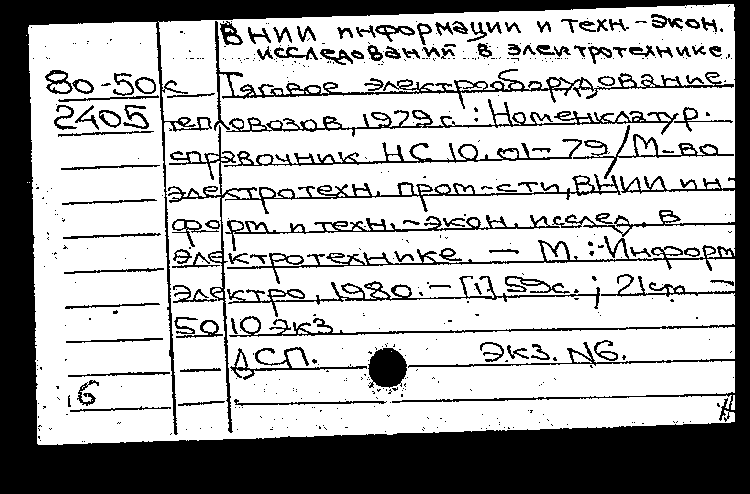 ВНИИ информации и техн.-экон.
исследований в электротехнике.
80-50к Тяговое электрооборудование
2405 тепловозов, 1979г. : Номенклатур.
справочник НС 10.01-79/М-во
электротехн. пром-сти, ВНИИ ин-
форм. и техн.-экон. исслед. в
электротехнике. — М. : Информ
электро, 1980. - [1], 59с. ; 21см -
5010 экз.
ДСП. Экз. N6.
б